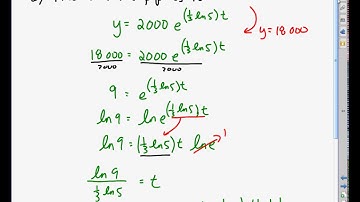 y = 2000 e^((1/3 ln5)t)
y = 18000
18000/2000 = 2000 e^((1/3 ln5)t)/2000
9 = e^((1/3 ln5)t)
ln 9 = ln e^((1/3 ln5)t)
ln 9 = (1/3 ln5)t ln e 1
ln 9 / (1/3 ln5) = t